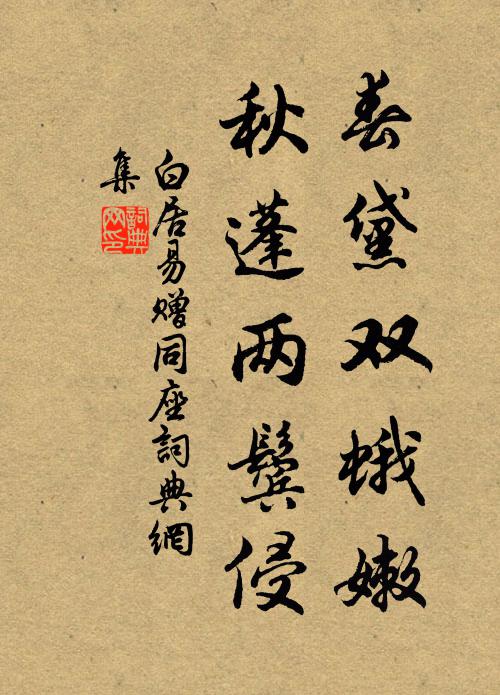 春黛双蛾嫩
秋蓬两鬓侵
白居易赠同座詞典網
集
詞典
网印